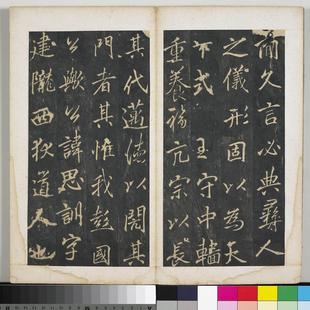 而久言必典彝人
之儀形固以為天
下式 守中
重養福亢宗以長
其代邁德以閎其
門者其惟我彭國
公歟公諱思訓字
建隴西狄道人也